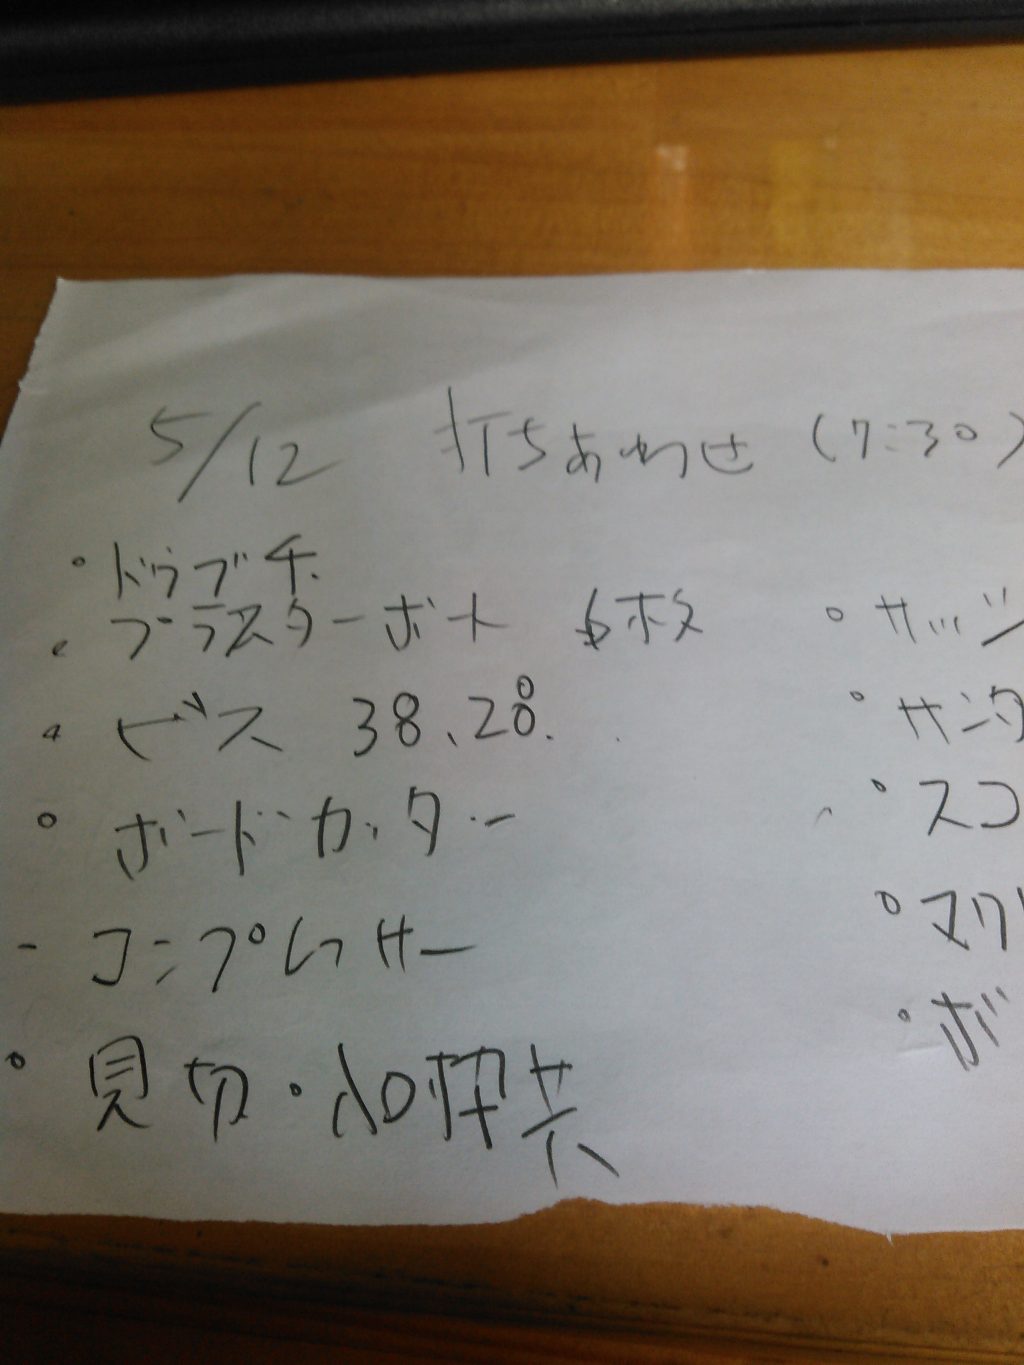 5/12 打ちあわせ (7:30)
・ドウブチ
・プラスターボート 6枚
・ビス 38、28.
・ボードカッター
- コンプレッサー
・見切・入口枠共
・サッシ
・サンタ
・スコ
・マクリ
・ボ